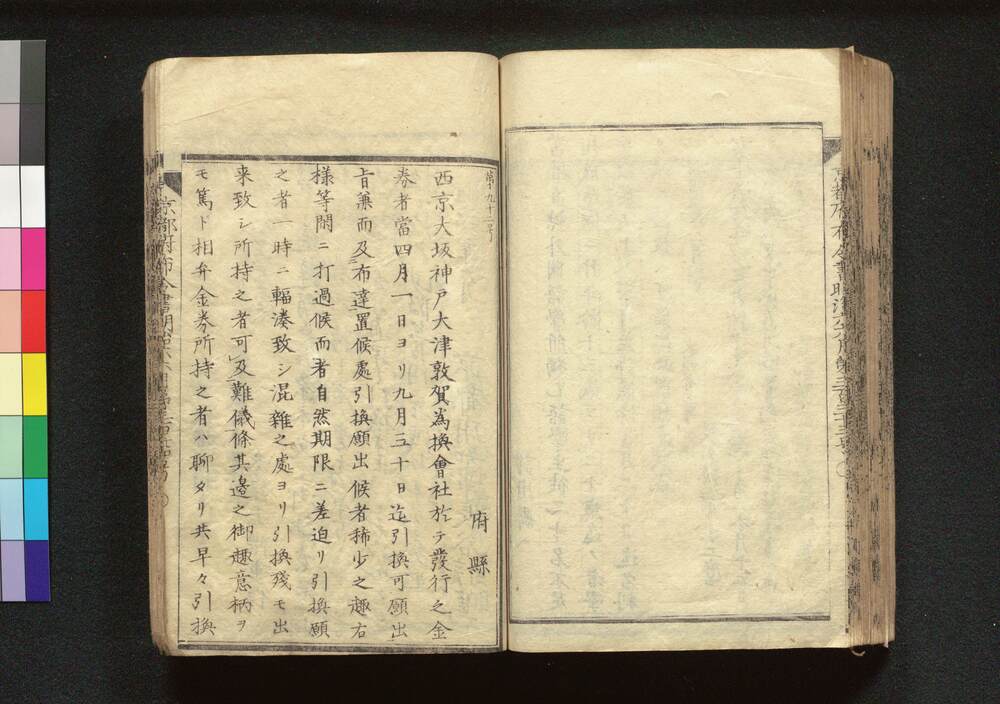 京都府布令書
第九十二号
府縣
西京大坂神戸大津敦賀為換會社於テ發行之金
券者當四月一日ヨリ九月三十日迄引換可願出
旨兼而及布達置候處引換願出候者稀少之趣右
様等閑ニ打過候而者自然期限ニ差迫リ引換願
之者一時ニ輻湊致シ混雜之處ヨリ引換残モ出
来致シ所持之者可及難儀條其邉之御趣意柄ヲ
モ篤ト相弁金券所持之者ハ聊タリ共早々引換
京都府布令書明治六年